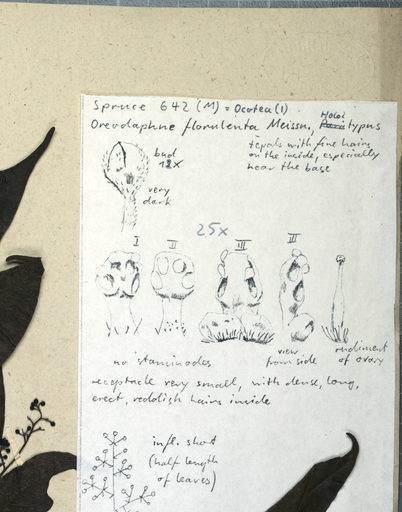 Spruce 642 (M) = Ocotea (1)
Oreodaphne florulenta Meissn., Holotypus
tepals with fine hairs
on the inside, especially
near the base
bud
12x
very
dark
25x
I
II
III
III
no staminodes
view
from side
rudiment
of ovary
receptacle very small, with dense, long,
erect, reddish hairs inside
infl. short
(half length
of leaves)